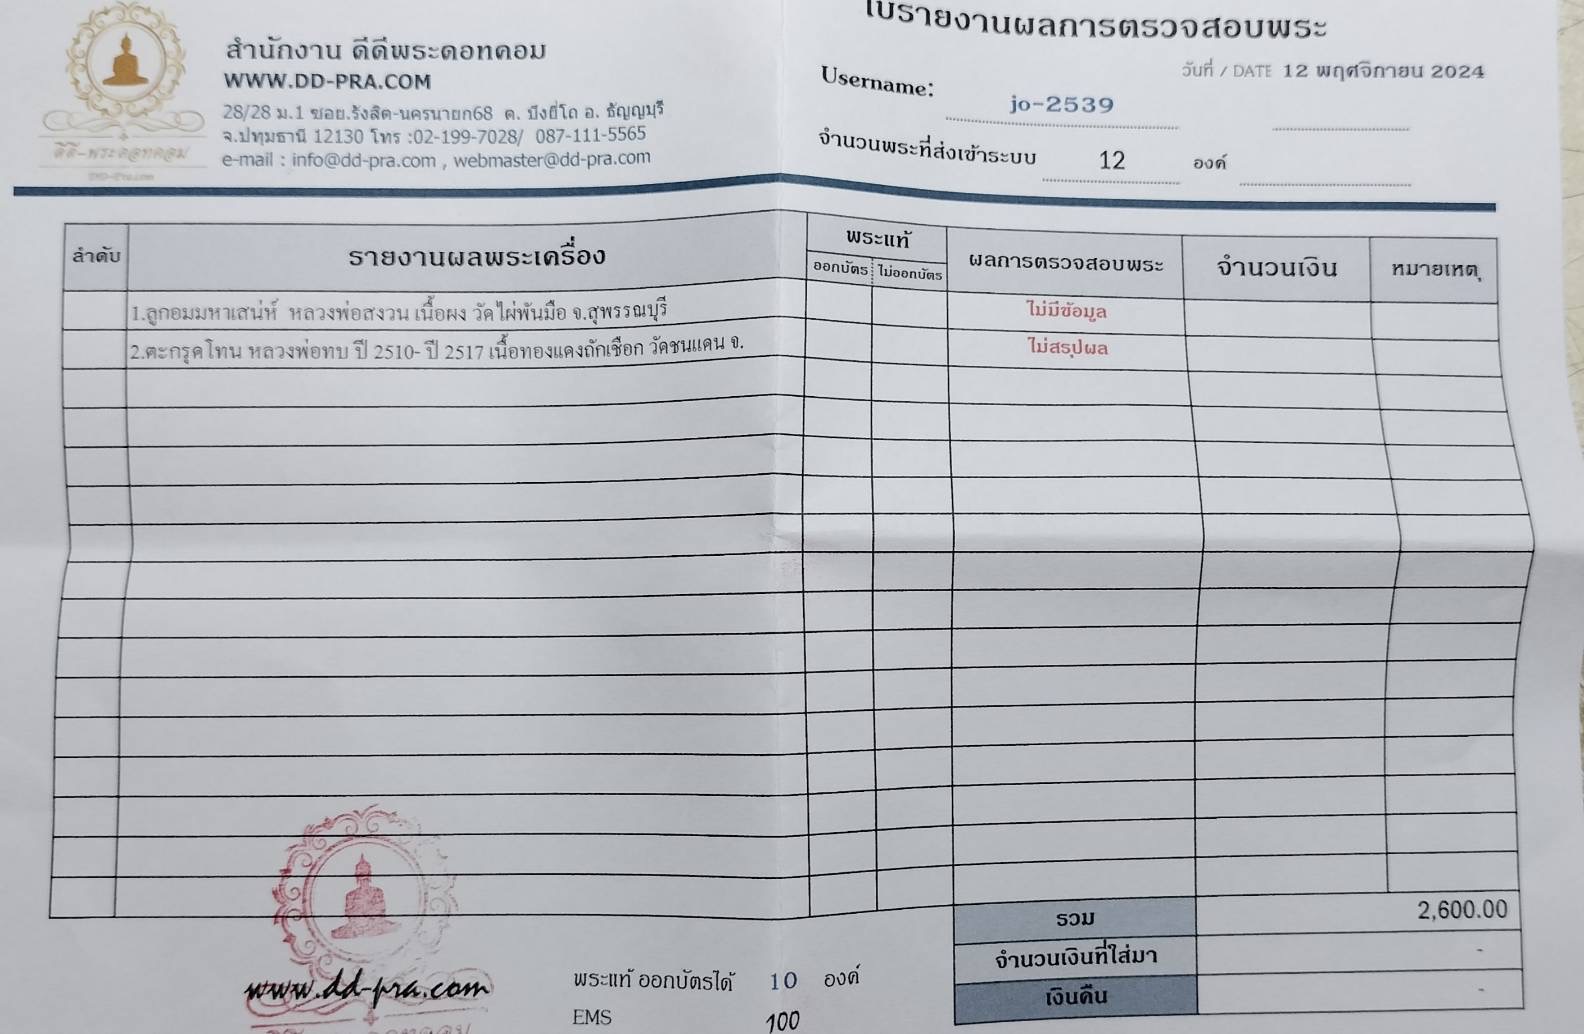 ใบรายงานผลการตรวจสอบพระ
สำนักงาน ดีดีพระดอทคอม
WWW.DD-PRA.COM
28/28 ม.1 ซอย.รังสิต-นครนายก68 ต. บึงยี่โถ อ. ธัญญบุรี
จ.ปทุมธานี 12130 โทร :02-199-7028/ 087-111-5565
e-mail : info@dd-pra.com , webmaster@dd-pra.com
ดีดี-พระดอทคอม
DD-Pra.com
วันที่ / DATE 12 พฤศจิกายน 2024
Username: jo-2539
จำนวนพระที่ส่งเข้าระบบ 12 องค์
ลำดับ รายงานผลพระเครื่อง พระแท้ ผลการตรวจสอบพระ จำนวนเงิน หมายเหตุ
ออกบัตร ไม่ออกบัตร
1.ลูกอมมหาเสน่ห์ หลวงพ่อสงวน เนื้อผง วัดไผ่พันมือ จ.สุพรรณบุรี ไม่มีข้อมูล
2.ตะกรุดโทน หลวงพ่อทบ ปี 2510- ปี 2517 เนื้อทองแดงถักเชือก วัดชนแดน จ. ไม่สรุปผล
รวม 2,600.00
จำนวนเงินที่ใส่มา -
เงินคืน -
www.dd-pra.com
พระแท้ ออกบัตรได้ 10 องค์
EMS 100